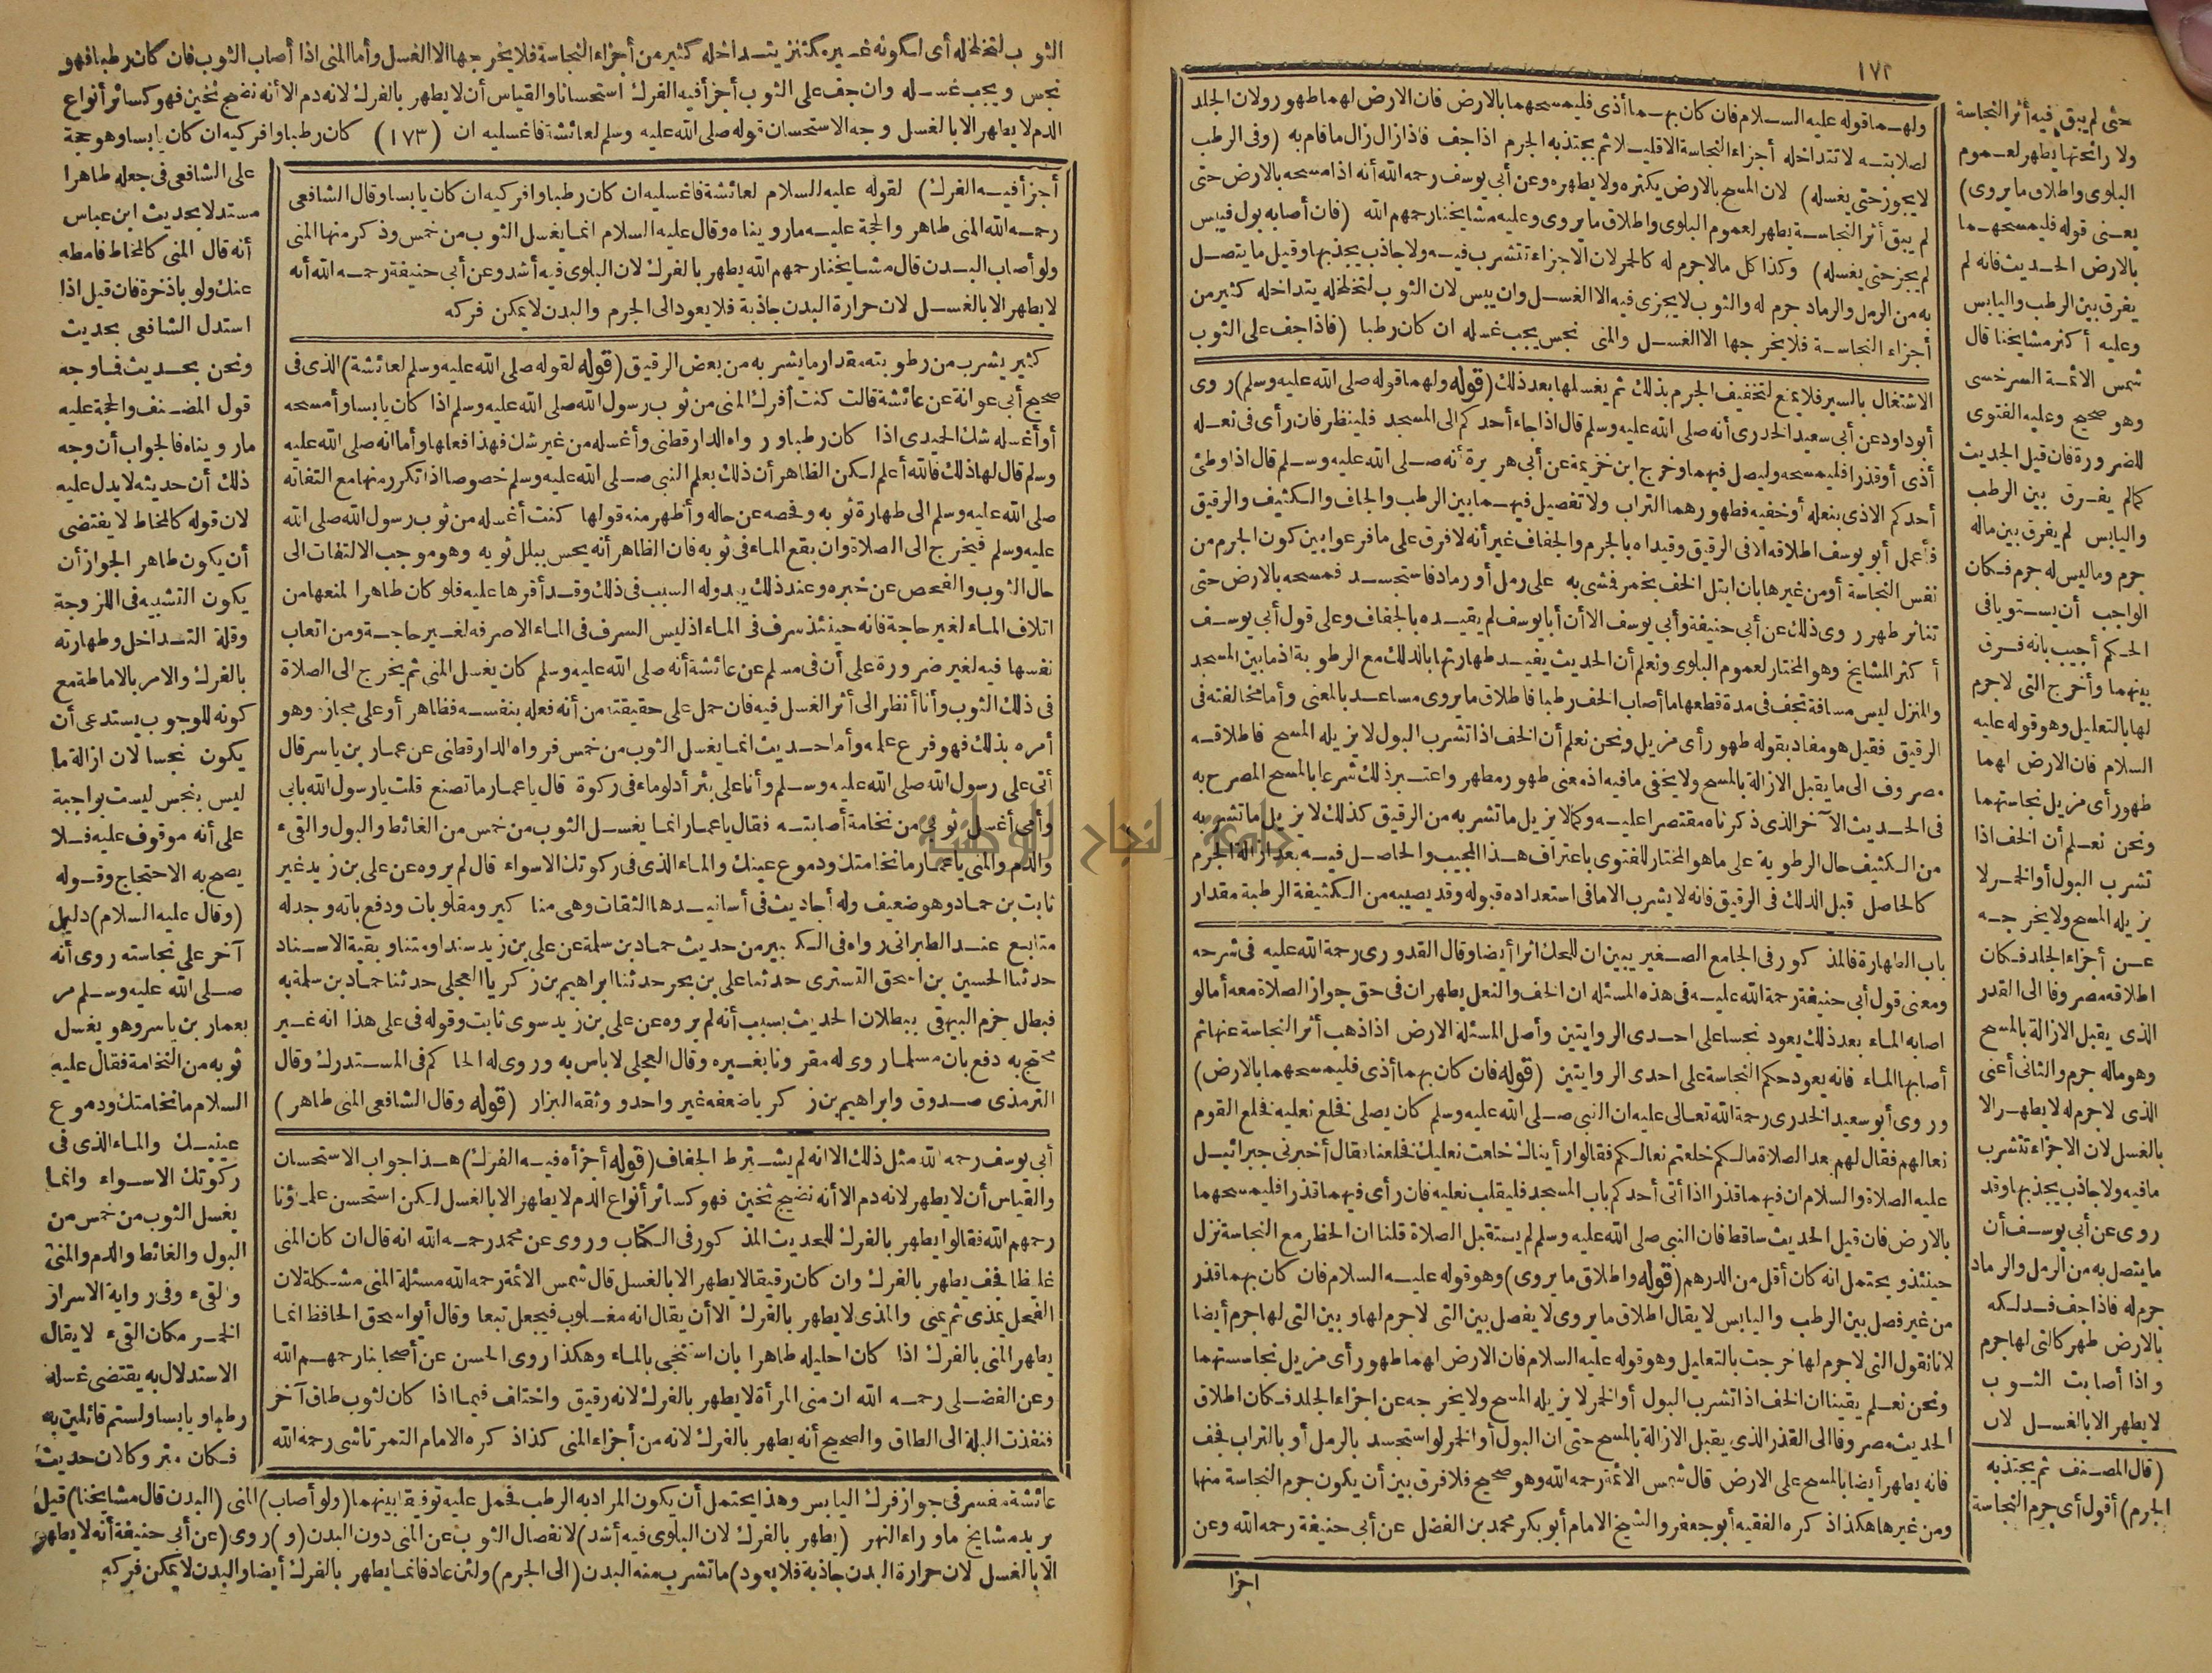 ١٧٢
ولهما قوله عليه السلام فان كان بهما أذى فليمسحهما بالارض فان الارض لهما طهور ولان الجلد
لصلابته لا تتداخله أجزاء النجاسة الا قليلا ثم يجتذبه الجرم اذا جف فاذا زال زال ما قام به (وفى الرطب
لا يجوز حتى يغسله) لان المسح بالارض يكثره ولا يطهره وعن أبى يوسف رحمه الله أنه اذا مسحه بالارض حتى
لم يبق أثر النجاسة يطهر لعموم البلوى واطلاق ما يروى وعليه مشايخنا رحمهم الله (فان أصابه بول فيبس
لم يجز حتى يغسله) وكذا كل ما لا جرم له كالخمر لان الاجزاء تتشرب فيه ولا جاذب يجذبها وقيل ما يتصل
به من الرمل والرماد جرم له والثوب لا يجزى فيه الا الغسل وان يبس لان الثوب لتخلخله يتداخله كثير من
أجزاء النجاسة فلا يخرجها الا الغسل والمنى نجس يجب غسله ان كان رطبا (فاذا جف على الثوب
الاشتغال بالسير فلا يمنع لتخفيف الجرم بذلك ثم يغسلها بعد ذلك (قوله ولهما قوله صلى الله عليه وسلم) روى
أبو داود عن أبى سعيد الخدرى أنه صلى الله عليه وسلم قال اذا جاء أحدكم الى المسجد فلينظر فان رأى فى نعله
أذى أو قذرا فليمسحه وليصل فيهما وخرج ابن خزيمة عن أبى هريرة أنه صلى الله عليه وسلم قال اذا وطئ
أحدكم الاذى بنعله أو خفيه فطهورهما التراب ولا تفصيل فيهما بين الرطب والجاف والكثيف والرقيق
فأعمل أبو يوسف اطلاقه الا فى الرقيق وقيداه بالجرم والجفاف غير أنه لا فرق على ما فرعوا بين كون الجرم من
نفس النجاسة أو من غيرها بان ابتل الخف بخمر فمشى به على رمل أو رماد فاستجسد فمسحه بالارض حتى
تناثر طهر روى ذلك عن أبى حنيفة وأبى يوسف الا أن أبا يوسف لم يقيده بالجفاف وعلى قول أبى يوسف
أكثر المشايخ وهو المختار لعموم البلوى ونعلم أن الحديث يفيد طهارتها بالدلك مع الرطوبة اذ ما بين المسجد
والمنزل ليس مسافة تجف فى مدة قطعها ما أصاب الخف رطبا فاطلاق ما يروى مساعد بالمعنى وأما مخالفته فى
الرقيق فقيل هو مفاد بقوله طهور أى مزيل ونحن نعلم أن الخف اذا تشرب البول لا يزيله المسح فاطلاقه
مصروف الى ما يقبل الازالة بالمسح ولا يخفى ما فيه اذ معنى طهور مطهر واعتبر ذلك شرعا بالمسح المصرح به
فى الحديث الآخر الذى ذكرناه مقتصرا عليه وكما لا يزيل ما تشربه من الرقيق كذلك لا يزيل ما تشربه
من الكثيف حال الرطوبة على ما هو المختار للفتوى باعتراف هذا المجيب والحاصل فيه بعد ازالة الجرم
كالحاصل قبل الدلك فى الرقيق فانه لا يشرب الا ما فى استعداده قبوله وقد يصيبه من الكثيفة الرطبة مقدار
باب الطهارة فالمذكور فى الجامع الصغير يبين ان للحك اثرا أيضا وقال القدورى رحمة الله عليه فى شرحه
ومعنى قول أبى حنيفة رحمة الله عليه فى هذه المسئلة ان الخف والنعل يطهران فى حق جواز الصلاة معه أما لو
اصابه الماء بعد ذلك يعود نجسا على احدى الروايتين وأصل المسئلة الارض اذا ذهب أثر النجاسة عنها ثم
أصابها الماء فانه يعود حكم النجاسة على احدى الروايتين (قوله فان كان بهما أذى فليمسحهما بالارض)
وروى أبو سعيد الخدرى رحمة الله تعالى عليه ان النبى صلى الله عليه وسلم كان يصلى فخلع نعليه فخلع القوم
نعالهم فقال لهم بعد الصلاة مالكم خلعتم نعالكم فقالوا رأيناك خلعت نعليك فخلعنا فقال أخبرنى جبرائيل
عليه الصلاة والسلام ان فيهما قذرا اذا أتى أحدكم باب المسجد فليقلب نعليه فان رأى فيهما قذرا فليمسحهما
بالارض فان قيل الحديث ساقط فان النبى صلى الله عليه وسلم لم يستقبل الصلاة قلنا ان الحظر مع النجاسة نزل
حينئذ ويحتمل انه كان أقل من الدرهم (قوله واطلاق ما يروى) وهو قوله عليه السلام فان كان بهما قذر
من غير فصل بين الرطب واليابس لا يقال اطلاق ما يروى لا يفصل بين التى لا جرم لها وبين التى لها جرم أيضا
لانا نقول التى لا جرم لها خرجت بالتعليل وهو قوله عليه السلام فان الارض لهما طهور أى مزيل نجاستهما
ونحن نعلم يقينا ان الخف اذا تشرب البول أو الخمر لا يزيله المسح ولا يخرجه عن اجزاء الجلد فكان اطلاق
الحديث مصروفا الى القذر الذى يقبل الازالة بالمسح حتى ان البول أو الخمر لو استجسد بالرمل أو بالتراب فجف
فانه يطهر أيضا بالمسح على الارض قال شمس الائمة رحمه الله وهو صحيح فلا فرق بين أن يكون جرم النجاسة منها
ومن غيرها هكذا ذكره الفقيه أبو جعفر والشيخ الامام أبو بكر محمد بن الفضل عن أبى حنيفة رحمه الله وعن
اجزا
حتى لم يبق فيه أثر النجاسة
ولا رائحتها يطهر لعموم
البلوى واطلاق ما يروى)
يعنى قوله فليمسحهما
بالارض الحديث فانه لم
يفرق بين الرطب واليابس
وعليه أكثر مشايخنا قال
شمس الائمة السرخسى
وهو صحيح وعليه الفتوى
للضرورة فان قيل الحديث
كما لم يفرق بين الرطب
واليابس لم يفرق بين ماله
جرم وما ليس له جرم فكان
الواجب أن يستويا فى
الحكم أجيب بانه فرق
بينهما وأخرج التى لا جرم
لها بالتعليل وهو قوله عليه
السلام فان الارض لهما
طهور أى مزيل نجاستهما
ونحن نعلم أن الخف اذا
تشرب البول أو الخمر لا
يزيله المسح ولا يخرجه
عن أجزاء الجلد فكان
اطلاقه مصروفا الى القدر
الذى يقبل الازالة بالمسح
وهو ماله جرم والثانى أعنى
الذى لا جرم له لا يطهر الا
بالغسل لان الاجزاء تتشرب
ما فيه ولا جاذب يجذبها وقد
روى عن أبى يوسف أن
ما يتصل به من الرمل والرماد
جرم له فاذا جف فدلكه
بالارض طهر كالتى لها جرم
واذا أصابت الثوب
لا يطهر الا بالغسل لان
(قال المصنف ثم يجتذبه
الجرم) أقول أى جرم النجاسة
الثوب لتخلخله أى لكونه غير مكتنز يتداخله كثير من أجزاء النجاسة فلا يخرجها الا الغسل وأما المنى اذا أصاب الثوب فان كان رطبا فهو
نجس ويجب غسله وان جف على الثوب أجزأ فيه الفرك استحسانا والقياس أن لا يطهر بالفرك لانه دم الا أنه نضج ثخين فهو كسائر أنواع
الدم لا يطهر الا بالغسل وجه الاستحسان قوله صلى الله عليه وسلم لعائشة فاغسليه ان (١٧٣) كان رطبا وافركيه ان كان يابسا وهو حجة
أجزأ فيه الفرك) لقوله عليه السلام لعائشة فاغسليه ان كان رطبا وافركيه ان كان يابسا وقال الشافعى
رحمه الله المنى طاهر والحجة عليه ما روينا وقال عليه السلام انما يغسل الثوب من خمس وذكر منها المنى
ولو أصاب البدن قال مشايخنا رحمهم الله يطهر بالفرك لان البلوى فيه أشد وعن أبى حنيفة رحمه الله أنه
لا يطهر الا بالغسل لان حرارة البدن جاذبة فلا يعود الى الجرم والبدن لا يمكن فركه
كثير يشرب من رطوبته مقدار ما يشربه من بعض الرقيق (قوله لقوله صلى الله عليه وسلم لعائشة) الذى فى
صحيح أبى عوانة عن عائشة قالت كنت أفرك المنى من ثوب رسول الله صلى الله عليه وسلم اذا كان يابسا وأمسحه
أو أغسله شك الحميدى اذا كان رطبا ورواه الدارقطنى وأغسله من غير شك فهذا فعلها وأما انه صلى الله عليه
وسلم قال لها ذلك فالله أعلم لكن الظاهر أن ذلك بعلم النبى صلى الله عليه وسلم خصوصا اذا تكرر منها مع التفاته
صلى الله عليه وسلم الى طهارة ثوبه وفحصه عن حاله وأظهر منه قولها كنت أغسله من ثوب رسول الله صلى الله
عليه وسلم فيخرج الى الصلاة وان بقع الماء فى ثوبه فان الظاهر أنه يحس ببلل ثوبه وهو موجب الالتفات الى
حال الثوب والفحص عن خبره وعند ذلك يبدو له السبب فى ذلك وقد أقرها عليه فلو كان طاهرا لمنعها من
اتلاف الماء لغير حاجة فانه حينئذ سرف فى الماء اذ ليس السرف فى الماء الا صرفه لغير حاجة ومن اتعاب
نفسها فيه لغير ضرورة على أن فى مسلم عن عائشة أنه صلى الله عليه وسلم كان يغسل المنى ثم يخرج الى الصلاة
فى ذلك الثوب وأنا أنظر الى أثر الغسل فيه فان حمل على حقيقته من أنه فعله بنفسه فظاهر أو على مجازه وهو
أمره بذلك فهو فرع علمه وأما حديث انما يغسل الثوب من خمس فرواه الدارقطنى عن عمار بن ياسر قال
أتى على رسول الله صلى الله عليه وسلم وأنا على بئر أدلو ماء فى ركوة قال يا عمار ما تصنع قلت يا رسول الله بابى
وأمى أغسل ثوبى من نخامة أصابته فقال يا عمار انما يغسل الثوب من خمس من الغائط والبول والقىء
والدم والمنى يا عمار ما نخامتك ودموع عينك والماء الذى فى ركوتك الا سواء قال لم يروه عن على بن زيد غير
ثابت بن حماد وهو ضعيف وله أحاديث فى أسانيدها الثقات وهى مناكير ومقلوبات ودفع بانه وجد له
متابع عند الطبرانى رواه فى الكبير من حديث حماد بن سلمة عن على بن زيد سندا ومتنا وبقية الاسناد
حدثنا الحسين بن اسحق التسترى حدثنا على بن بحر حدثنا ابراهيم بن زكريا العجلى حدثنا حماد بن سلمة به
فبطل جزم البيهقى ببطلان الحديث بسبب أنه لم يروه عن على بن زيد سوى ثابت وقوله فى على هذا انه غير
محتج به دفع بان مسلما روى له مقرونا بغيره وقال العجلى لا باس به وروى له الحاكم فى المستدرك وقال
الترمذى صدوق وابراهيم بن زكريا ضعفه غير واحد ووثقه البزار (قوله وقال الشافعى المنى طاهر)
أبى يوسف رحمه الله مثل ذلك الا انه لم يشترط الجفاف (قوله أجزأه فيه الفرك) هذا جواب الاستحسان
والقياس أن لا يطهر لانه دم الا أنه نضيج ثخين فهو كسائر أنواع الدم لا يطهر الا بالغسل لكن استحسن علماؤنا
رحمهم الله فقالوا يطهر بالفرك للحديث المذكور فى الكتاب وروى عن محمد رحمه الله انه قال ان كان المنى
غليظا فجف يطهر بالفرك وان كان رقيقا لا يطهر الا بالغسل قال شمس الائمة رحمه الله مسئلة المنى مشكلة لان
الفحل يمذى ثم يمنى والمذى لا يطهر بالفرك الا أن يقال انه مغلوب فيجعل تبعا وقال أبو اسحق الحافظ انما
يطهر المنى بالفرك اذا كان احليله طاهرا بان استنجى بالماء وهكذا روى الحسن عن أصحابنا رحمهم الله
وعن الفضلى رحمه الله ان منى المرأة لا يطهر بالفرك لانه رقيق واختلف فيما اذا كان لثوب طاق آخر
فنفذت البلة الى الطاق والصحيح أنه يطهر بالفرك لانه من أجزاء المنى كذا ذكره الامام التمرتاشى رحمة الله
على الشافعى فى جعله طاهرا
مستدلا بحديث ابن عباس
أنه قال المنى كالمخاط فامطه
عنك ولو باذخرة فان قيل اذا
استدل الشافعى بحديث
ونحن بحديث فما وجه
قول المصنف والحجة عليه
ما روينا فالجواب أن وجه
ذلك أن حديثه لا يدل عليه
لان قوله كالمخاط لا يقتضى
أن يكون طاهر الجواز أن
يكون التشبيه فى اللزوجة
وقلة التداخل وطهارته
بالفرك والامر بالاماطة مع
كونه للوجوب يستدعى أن
يكون نجسا لان ازالة ما
ليس بنجس ليست بواجبة
على أنه موقوف عليه فلا
يصح به الاحتجاج وقوله
(وقال عليه السلام) دليل
آخر على نجاسته روى أنه
صلى الله عليه وسلم مر
بعمار بن ياسر وهو يغسل
ثوبه من النخامة فقال عليه
السلام ما نخامتك ودموع
عينيك والماء الذى فى
ركوتك الا سواء وانما
يغسل الثوب من خمس من
البول والغائط والدم والمنى
والقىء وفى رواية الاسرار
الخمر مكان القىء لا يقال
الاستدلال به يقتضى غسله
رطبا ويابسا ولستم قائلين به
فكان متروكا لان حديث
عائشة مفسر فى جواز فرك اليابس وهذا يحتمل أن يكون المراد به الرطب فحمل عليه توفيقا بينهما (ولو أصاب) المنى (البدن قال مشايخنا) قيل
يريد مشايخ ما وراء النهر (يطهر بالفرك لان البلوى فيه أشد) لانفصال الثوب عن المنى دون البدن (و) روى (عن أبى حنيفة أنه لا يطهر
الا بالغسل لان حرارة البدن جاذبة فلا يعود) ما تشرب منه البدن (الى الجرم) ولئن عاد فانما يطهر بالفرك أيضا والبدن لا يمكن فركه
جامعة النجاح الوطنية